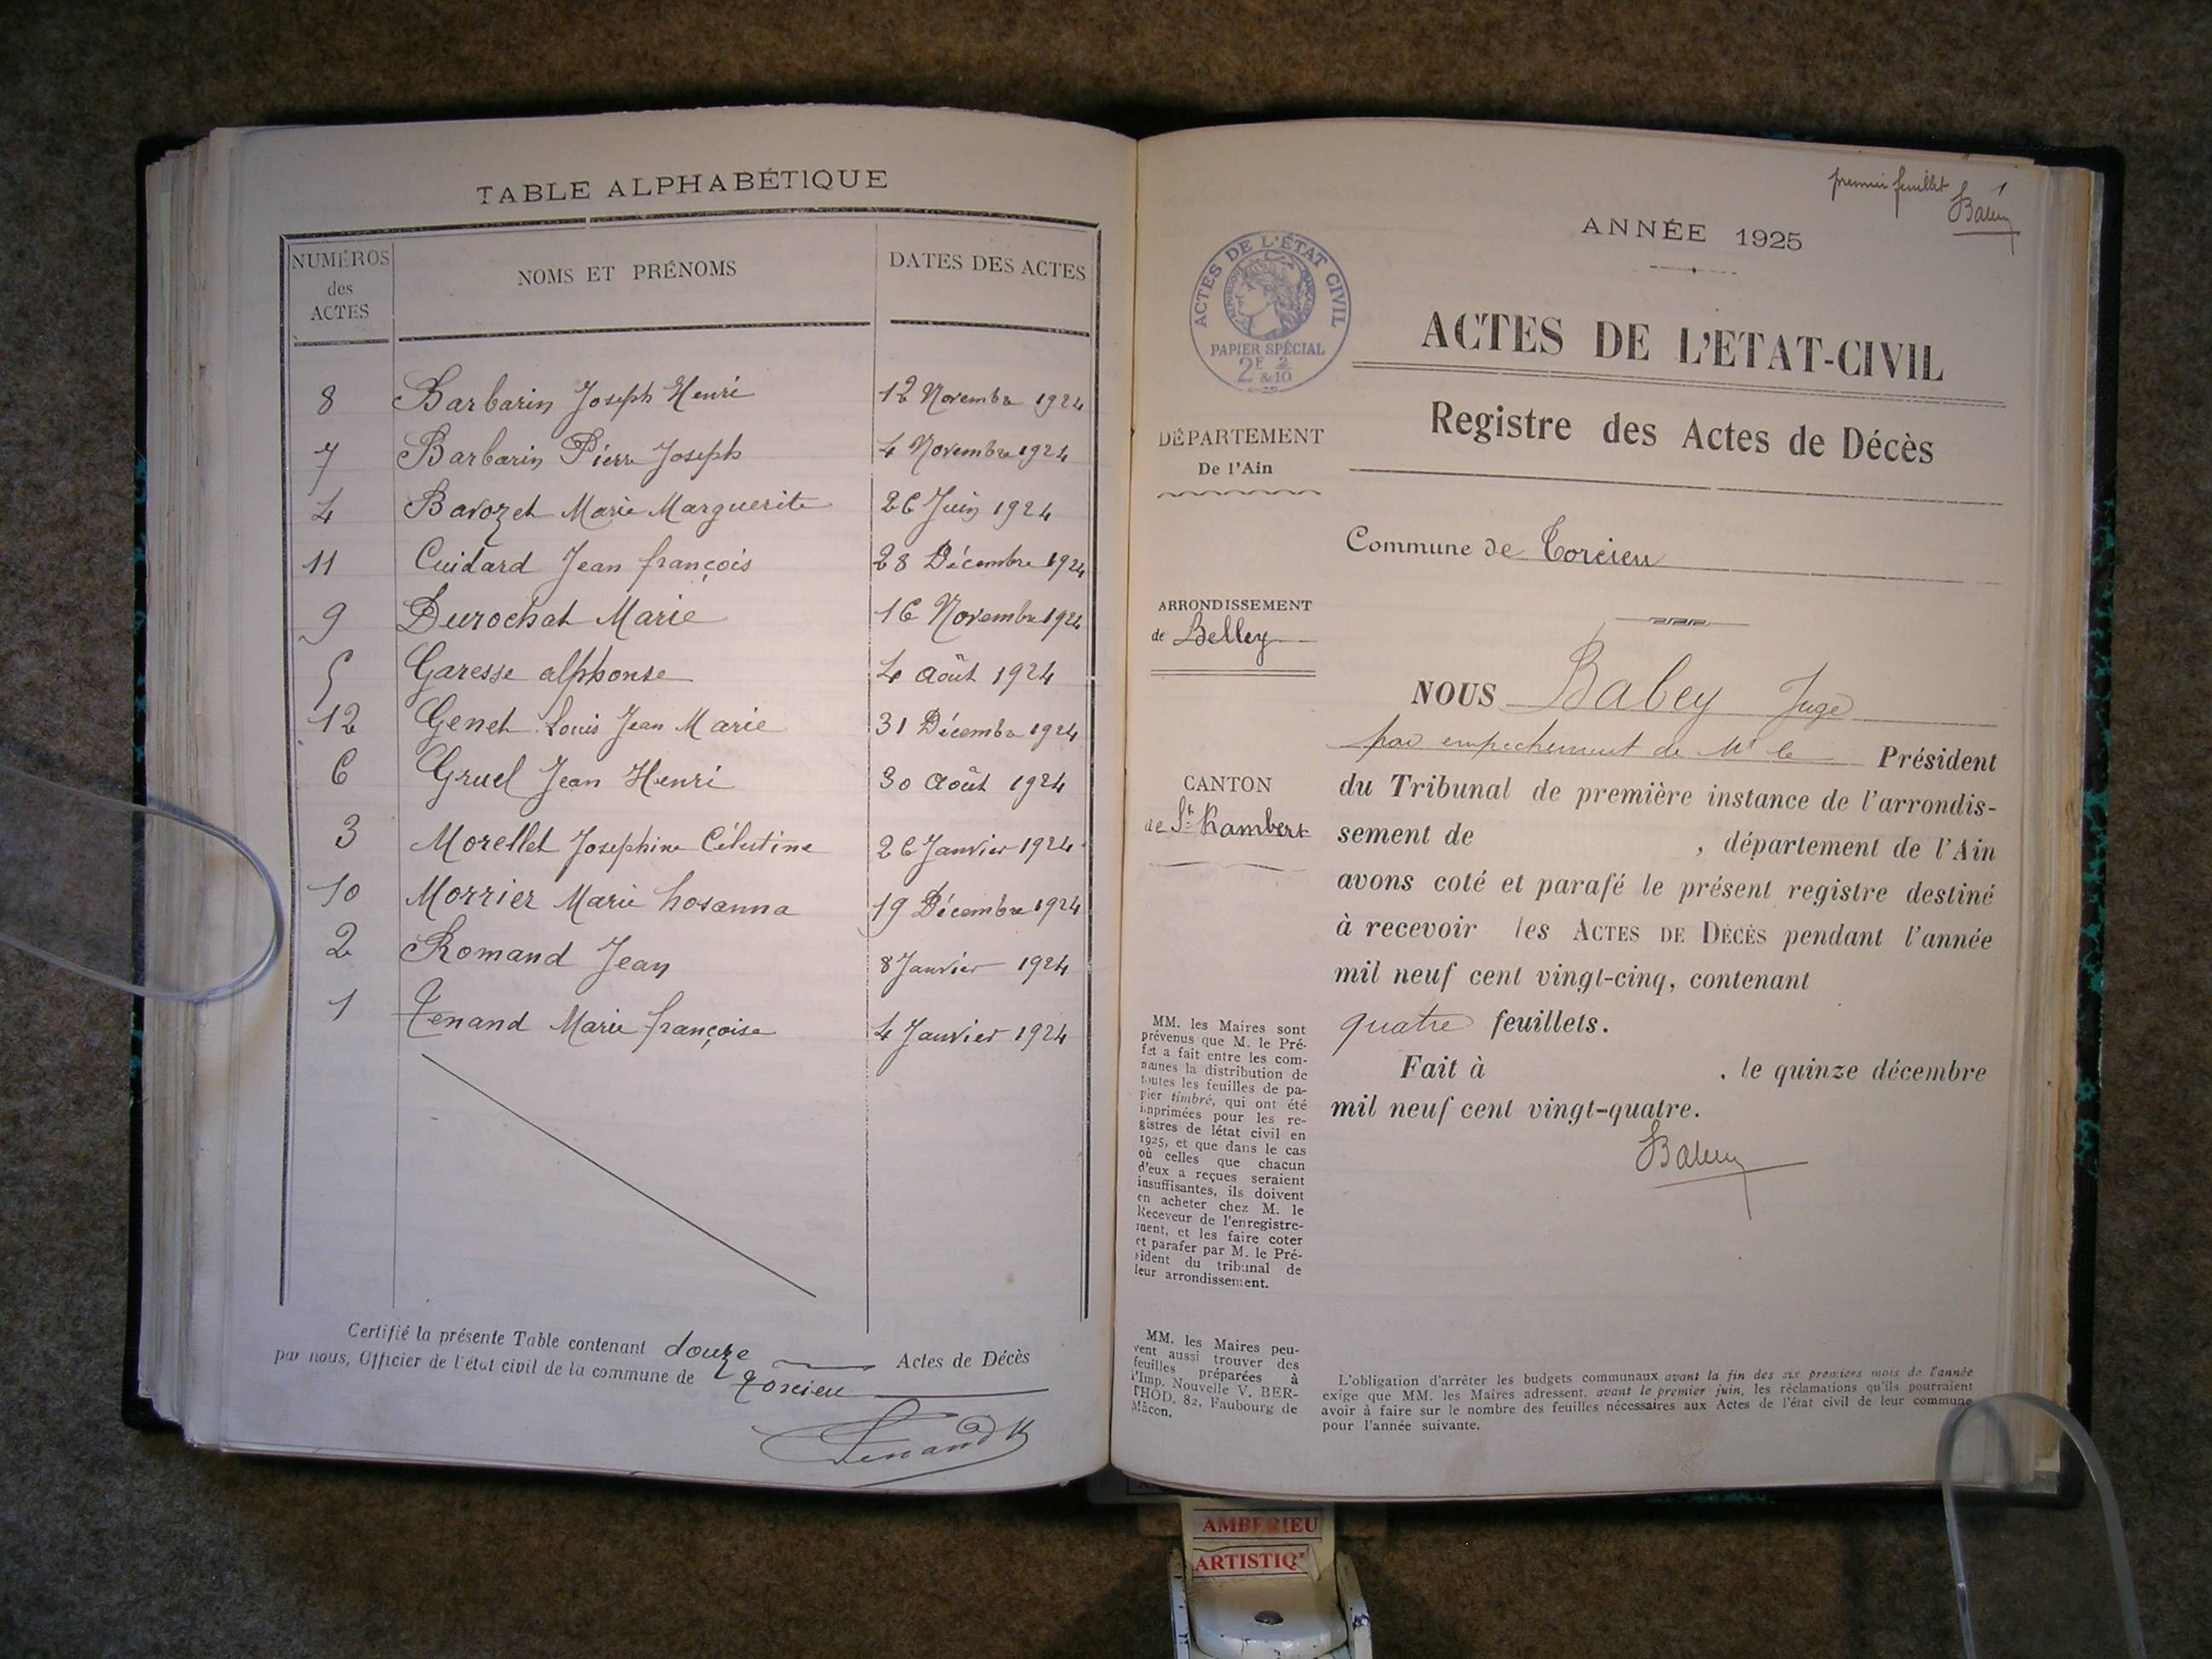 TABLE ALPHABÉTIQUE
NUMÉROS des ACTES NOMS ET PRÉNOMS DATES DES ACTES
8 Barbarin Joseph Henri 12 Novembre 1924
7 Barbarin Pierre Joseph 4 Novembre 1924
4 Bavozet Marie Marguerite 26 Juin 1924
11 Cuidard Jean françois 28 Décembre 1924
9 Durochat Marie 16 Novembre 1924
5 Garesse alphonse 4 août 1924
12 Genet Louis Jean Marie 31 Décembre 1924
6 Gruel Jean Henri 30 août 1924
3 Morellet Josephine Célestine 26 Janvier 1924
10 Morrier Marie hosanna 19 Décembre 1924
2 Romand Jean 8 Janvier 1924
1 Tenand Marie françoise 4 Janvier 1924
Certifié la présente Table contenant douze Actes de Décès
par nous, Officier de l'état civil de la commune de Torcieu
Tenand
premier feuillet 1
Babey
ANNÉE 1925
ACTES DE L'ÉTAT CIVIL
PAPIER SPÉCIAL
2F 2
&10
ACTES DE L'ETAT-CIVIL
Registre des Actes de Décès
DÉPARTEMENT
De l'Ain
Commune de Torcieu
ARRONDISSEMENT
de Belley
CANTON
de St Rambert
NOUS Babey Juge
par empechement de Mr le Président
du Tribunal de première instance de l'arrondis-
sement de , département de l'Ain
avons coté et parafé le présent registre destiné
à recevoir les ACTES DE DÉCÈS pendant l'année
mil neuf cent vingt-cinq, contenant
quatre feuillets.
Fait à , le quinze décembre
mil neuf cent vingt-quatre.
Babey
MM. les Maires sont
prévenus que M. le Pré-
fet a fait entre les com-
munes la distribution de
toutes les feuilles de pa-
pier timbré, qui ont été
imprimées pour les re-
gistres de létat civil en
1925, et que dans le cas
où celles que chacun
d'eux a reçues seraient
insuffisantes, ils doivent
en acheter chez M. le
Receveur de l'enregistre-
ment, et les faire coter
et parafer par M. le Pré-
sident du tribunal de
leur arrondissement.
MM. les Maires peu-
vent aussi trouver des
feuilles préparées à
l'Imp. Nouvelle V. BER-
THOD, 82, Faubourg de
Mâcon.
L'obligation d'arrêter les budgets communaux avant la fin des six premiers mois de l'année
exige que MM. les Maires adressent, avant le premier juin, les réclamations qu'ils pourraient
avoir à faire sur le nombre des feuilles nécessaires aux Actes de l'état civil de leur commune
pour l'année suivante.
AMBERIEU
ARTISTIQ'